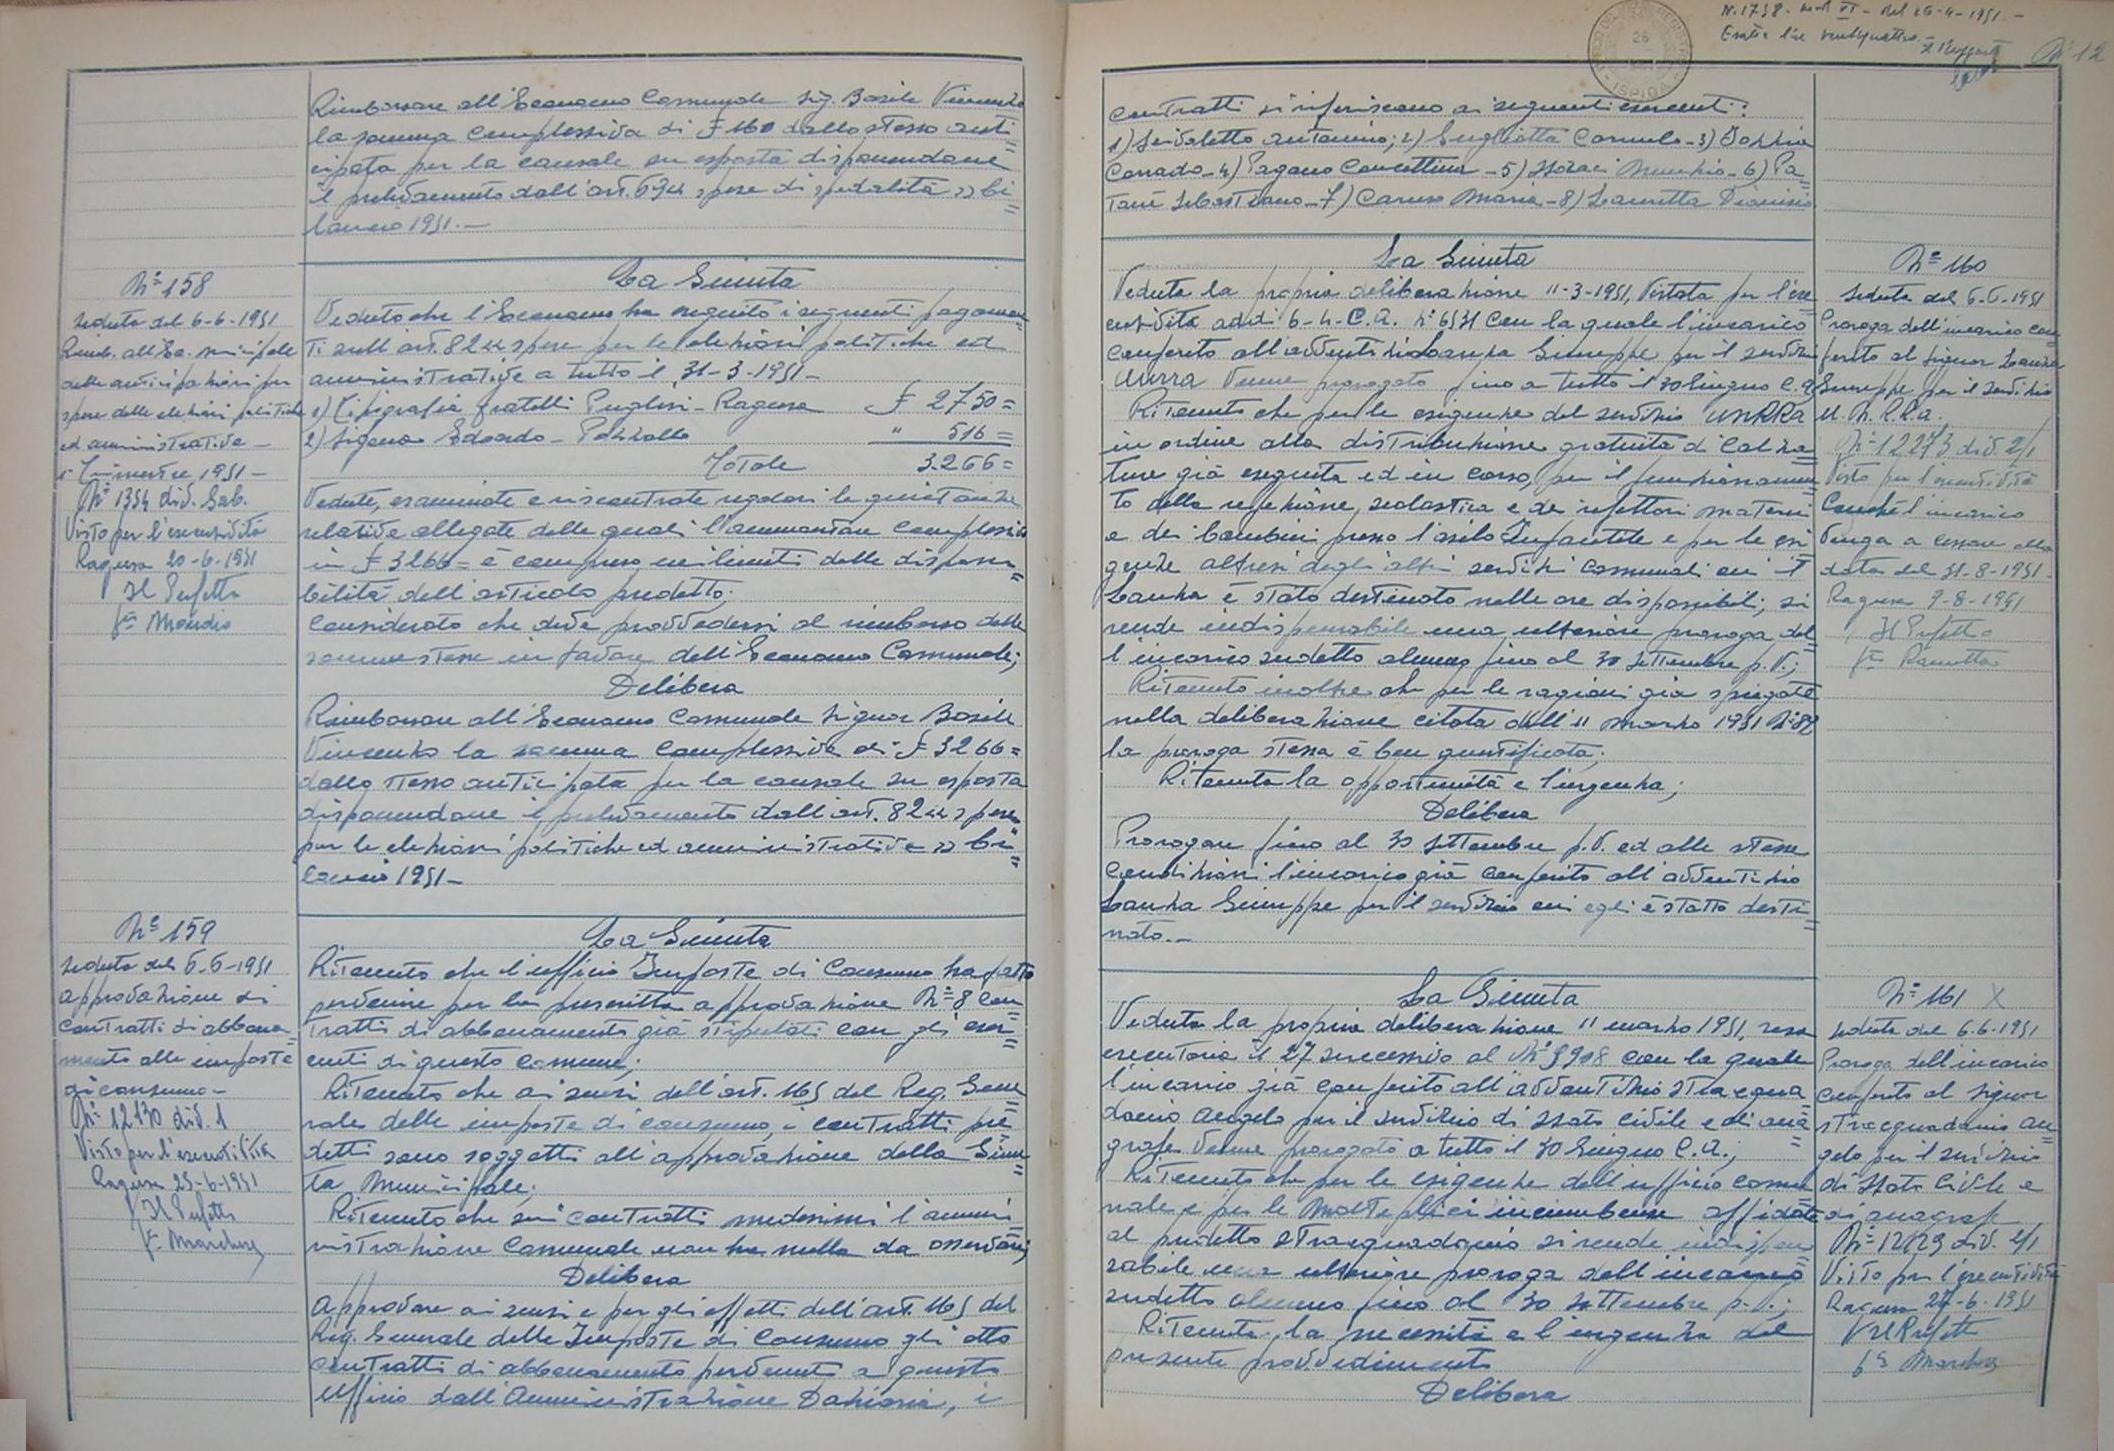 Rimborsare all'Economo Comunale Sig. Basile Vincenzo
la somma complessiva di £ 160 dallo stesso anti
cipata per la causale su esposta disponendone
il prelevamento dall'art. 63 << spese di spedalità >> bi
lancio 1951.-
N° 158
Seduta del 6-6-1951
Rimb. all'Ec.
delle anticipazioni per
spese delle elezioni politiche
ed amministrative -
1° Trimestre 1951 -
N° 1354 div. Gab.
Visto per l'esecutività
Ragusa 20-6-1951
Il Prefetto
La Giunta
Veduto che l'Economo ha eseguito i seguenti pagamen
ti sull'art. 82 << spese per le elezioni politiche ed
amministrative a tutto il 31-3-1951 -
1) Tipografia fratelli Puglisi - Ragusa £ 2750=
2) Sigona Edoardo - Pozzallo " 516=
Totale 3266=
Vedute, esaminate e riscontrate regolari le quietanze
relative allegate delle quali l'ammontare complessivo
in £ 3266= è compreso nei limiti delle disponi
bilità dell'articolo predetto;
Considerato che deve provvedersi al rimborso delle
somme stesse in favore dell'Economo Comunale;
Delibera
Rimborsare all'Economo Comunale Signor Basile
Vincenzo la somma complessiva di £ 3266=
dallo stesso anticipata per la causale su esposta
disponendone il prelevamento dall'art. 82 << spese
per le elezioni politiche ed amministrative >> bi
lancio 1951 -
N° 159
Seduta del 6-6-1951
Approvazione di
contratti di abbona
mento alle imposte
di consumo -
N° 12130 div. 1
Visto per l'esecutività
Ragusa 25-6-1951
Il Prefetto
La Giunta
Ritenuto che l'ufficio Imposte di Consumo ha fatto
pervenire per la prescritta approvazione N° 8 con
tratti di abbonamento già stipulati con gli eser
centi di questo comune;
Ritenuto che ai sensi dell'art. 165 del Reg. Gene
rale delle imposte di consumo, i contratti pre
detti sono soggetti all'approvazione della Giun
ta Municipale;
Ritenuto che sui contratti medesimi l'ammi
nistrazione Comunale non ha nulla da osservare;
Delibera
Approvare ai sensi e per gli effetti dell'art. 165 del
Reg. Generale delle Imposte di Consumo gli otto
contratti di abbonamento pervenuti a questo
Ufficio dall'Amministrazione Daziaria, i
N. 1738 - Mod VI - del 26-4-1951.-
Esatte lire ventiquattro -
N° 12
ISPICA
contratti si riferiscono ai seguenti esercenti:
1) Antonino; 2) Gugliotta Carmelo - 3)
Corrado - 4) Pagano Concettina - 5) - 6) Pa
tanè Sebastiano - 7) Caruso Maria - 8) Iannitta Dionisio
La Giunta
Veduta la propria deliberazione 11-3-1951, vistata per l'ese
cutività addì 6-4-C.A. N° con la quale l'incarico
conferito all'avventizio Lanza Giuseppe per il servizio
UNRRA venne prorogato fino a tutto il 30 Giugno C.A.
Ritenuto che per le esigenze del servizio UNRRA
in ordine alla distribuzione gratuita di calza
ture già eseguita ed in corso, per il funzionamen
to della refezione scolastica e dei refettori materni
e dei bambini presso l'asilo Infantile e per le esi
genze altresì degli altri servizi comunali cui il
Lanza è stato destinato nelle ore disponibili; si
rende indispensabile una ulteriore proroga del
l'incarico sudetto almeno fino al 30 Settembre p.v.;
Ritenuto inoltre che per le ragioni già spiegate
nella deliberazione citata dell'11 marzo 1951 N° 82
la proroga stessa è ben giustificata;
Ritenuta la opportunità e l'urgenza;
Delibera
Prorogare fino al 30 Settembre p.v. ed alle stesse
condizioni l'incarico già conferito all'avventizio
Lanza Giuseppe per il servizio cui egli è stato desti
nato.-
N° 160
Seduta del 6-6-1951
Proroga dell'incarico con
ferito al Signor Lanza
Giuseppe per il servizio
U.N.R.R.A.
N° 12273 div. 2/1
Visto per l'esecutività
l'incarico
venga a cessare alla
data del 31-8-1951 -
Ragusa 9-8-1951
Il Prefetto
La Giunta
Veduta la propria deliberazione 11 marzo 1951, resa
esecutoria il 27 successivo al N° 5908 con la quale
l'incarico già conferito all'avventizio Stracqua
danio Angelo per il servizio di Stato Civile e di ana
grafe venne prorogato a tutto il 30 Giugno C.A.;
Ritenuto che per le esigenze dell'ufficio comu
nale e per le molteplici incombenze affidate
al predetto Stracquadanio si rende indispen
sabile una ulteriore proroga dell'incarico
sudetto almeno fino al 30 Settembre p.v.;
Ritenuta la necessità e l'urgenza del
presente provvedimento
Delibera
N° 161 X
Seduta del 6.6.1951
Proroga dell'incarico
conferito al Signor
Stracquadanio An
gelo per il servizio
di Stato Civile e
di anagrafe
N° 12129 div. 2/1
Visto per l'esecutività
Ragusa 24-6-1951
Il Prefetto